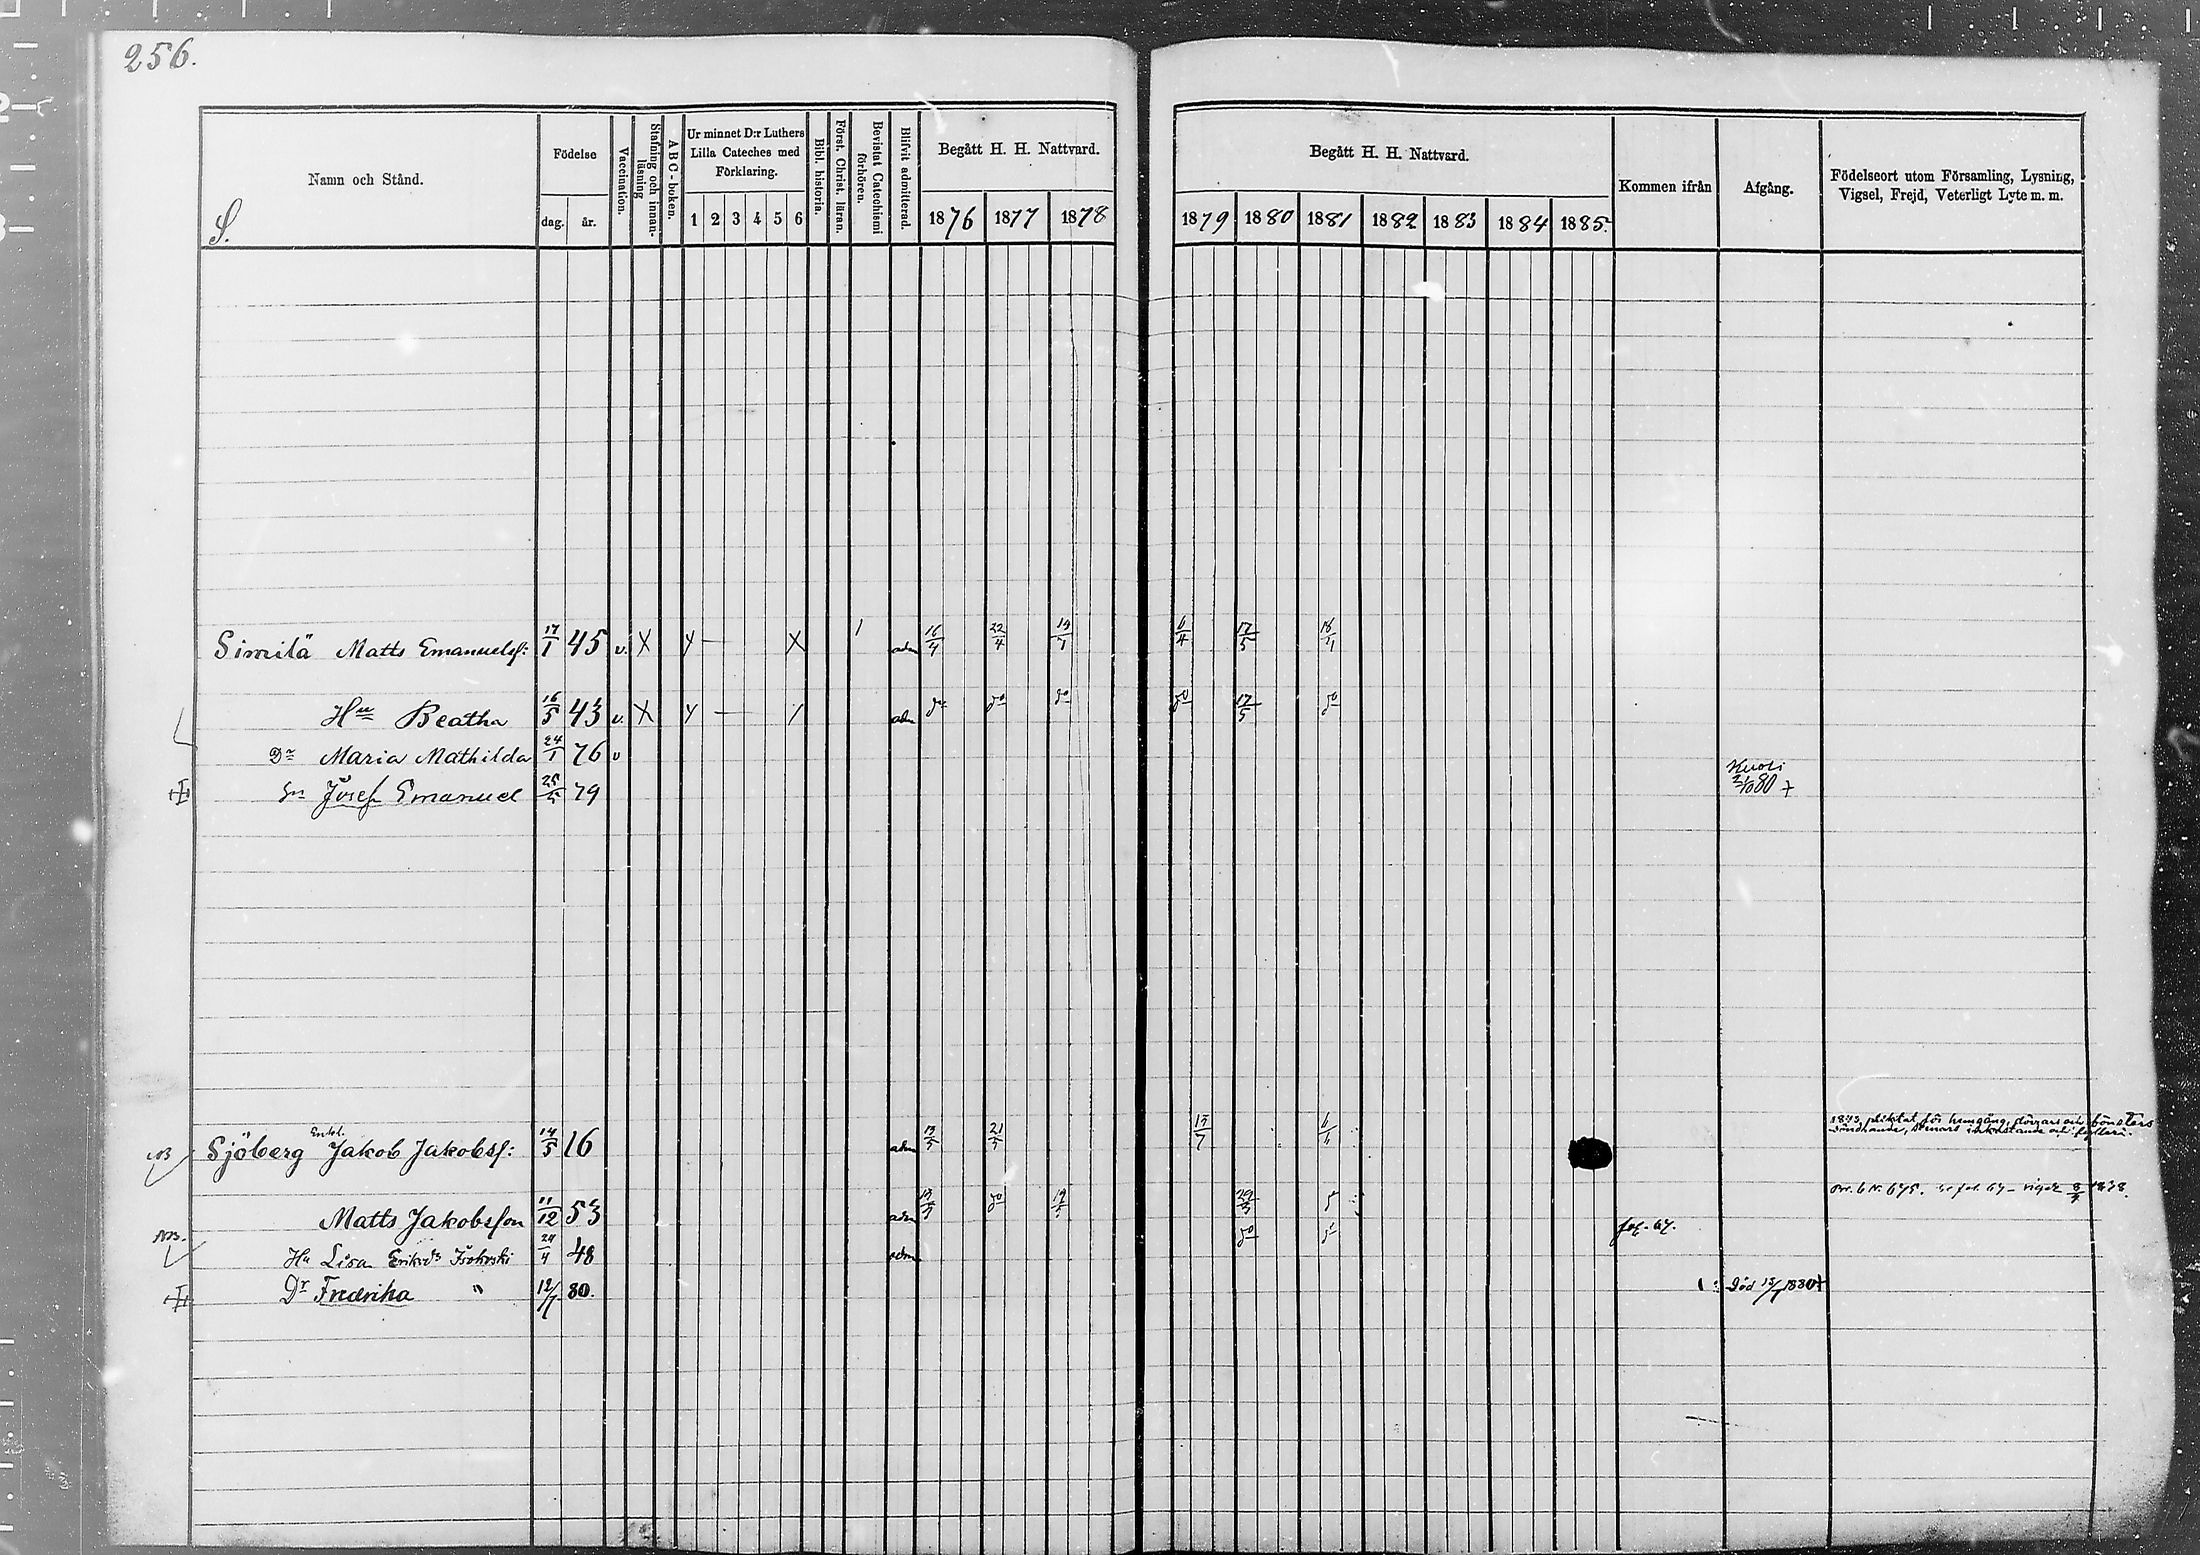 256.
S.
Namn och Stånd.
Födelse
dag.
år.
Vaccination.
Stafning och innan-läsning
A B C - boken.
Ur minnet D:r Luthers Lilla Cateches med Förklaring.
1 2 3 4 5 6
Bibl. historia.
Först. Christ. läran.
Bevistat Catechismi förhören.
Blifvit admitterad.
Begått H. H. Nattvard.
1876 1877 1878
Begått H. H. Nattvard.
1879 1880 1881 1882 1883 1884 1885.
Kommen ifrån
Afgång.
Födelseort utom Församling, Lysning, Vigsel, Frejd, Veterligt Lyte m. m.
Similä Matts Emanuelsf: 17/1 45 v. X X adm 16/4 22/4 19/4 6/4 17/5 18/4
Hu Beatha 16/5 43 v. X adm do do do do 17/5 do
Dr Maria Mathilda 24/1 76 v
Sn Josef Emanuel 25/5 79 Kuoli 2/10 80 +
NB Sjöberg Enkl. Jakob Jakobsf: 14/5 16 adm 21/5 15/7
Matts Jakobsson 11/12 53 adm do fol. 67.
NB. Hu Lisa Eriksdr 24/4 48 adm do
Dr Fredrika " 12/7 80. Död 15/7 1880 +